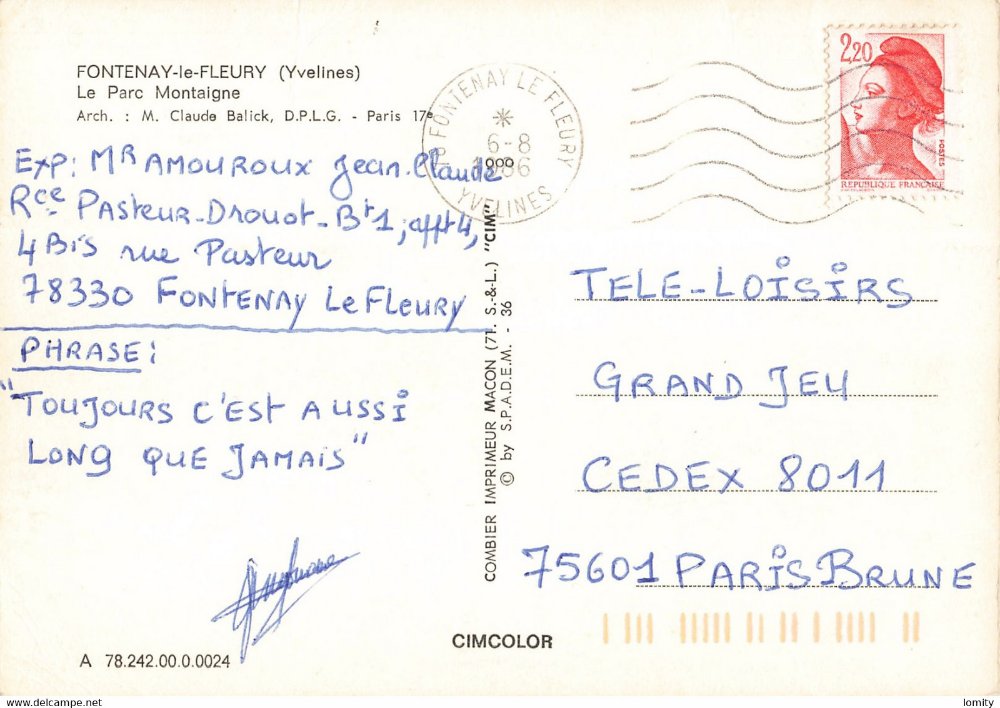 FONTENAY-le-FLEURY (Yvelines)
Le Parc Montaigne
Arch. : M. Claude Balick, D.P.L.G. - Paris 17e
Exp: MR AMOUROUX Jean-Claude
Rce PASTEUR-DROUOT-Bt 1, appt 4,
4 Bis rue Pasteur
78330 FONTENAY Le FLEURY
PHRASE:
"TOUJOURS C'EST AUSSI
LONG QUE JAMAIS"
A 78.242.00.0.0024
COMBIER IMPRIMEUR MACON (71. S.-&-L.) "CIM"
© by S.P.A.D.E.M. - 36
CIMCOLOR
78 FONTENAY LE FLEURY
6-8
1986
YVELINES
2,20
POSTES
REPUBLIQUE FRANCAISE
TELE-LOISIRS
GRAND JEU
CEDEX 8011
75601 PARIS BRUNE
lomity